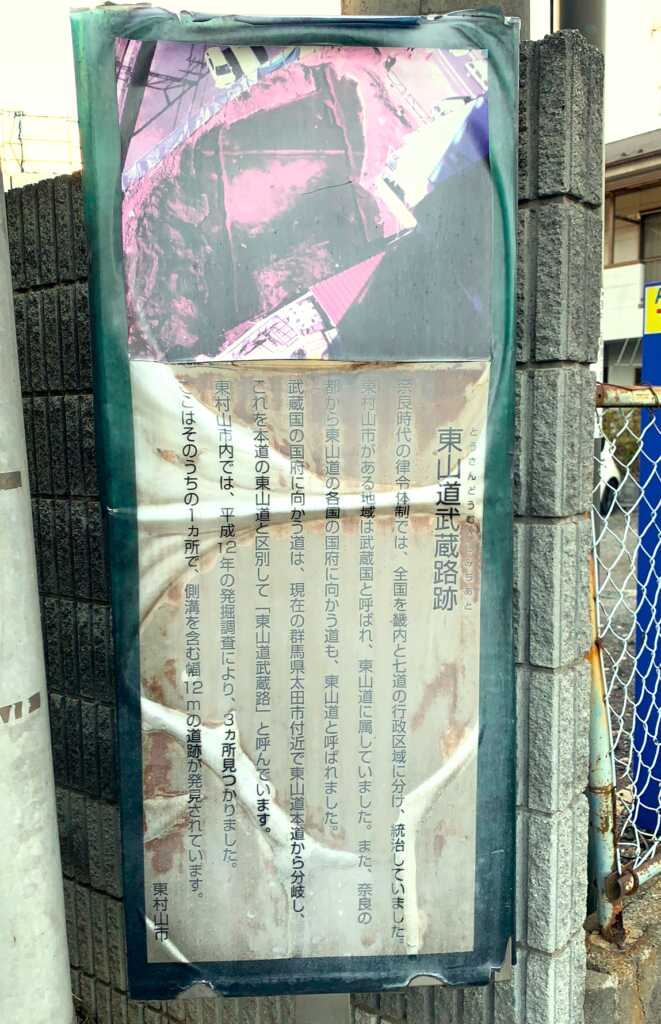 東山道武蔵路跡
奈良時代の律令体制では、全国を畿内と七道の行政区域に分け、統治していました。
東村山市がある地域は武蔵国と呼ばれ、東山道に属していました。また、奈良の
都から東山道の各国の国府に向かう道も、東山道と呼ばれました。
武蔵国の国府に向かう道は、現在の群馬県太田市付近で東山道本道から分岐し、
これを本道の東山道と区別して「東山道武蔵路」と呼んでいます。
東村山市内では、平成12年の発掘調査により、3ヵ所見つかりました。
ここはそのうちの1ヵ所で、側溝を含む幅12mの道跡が発見されています。
東村山市